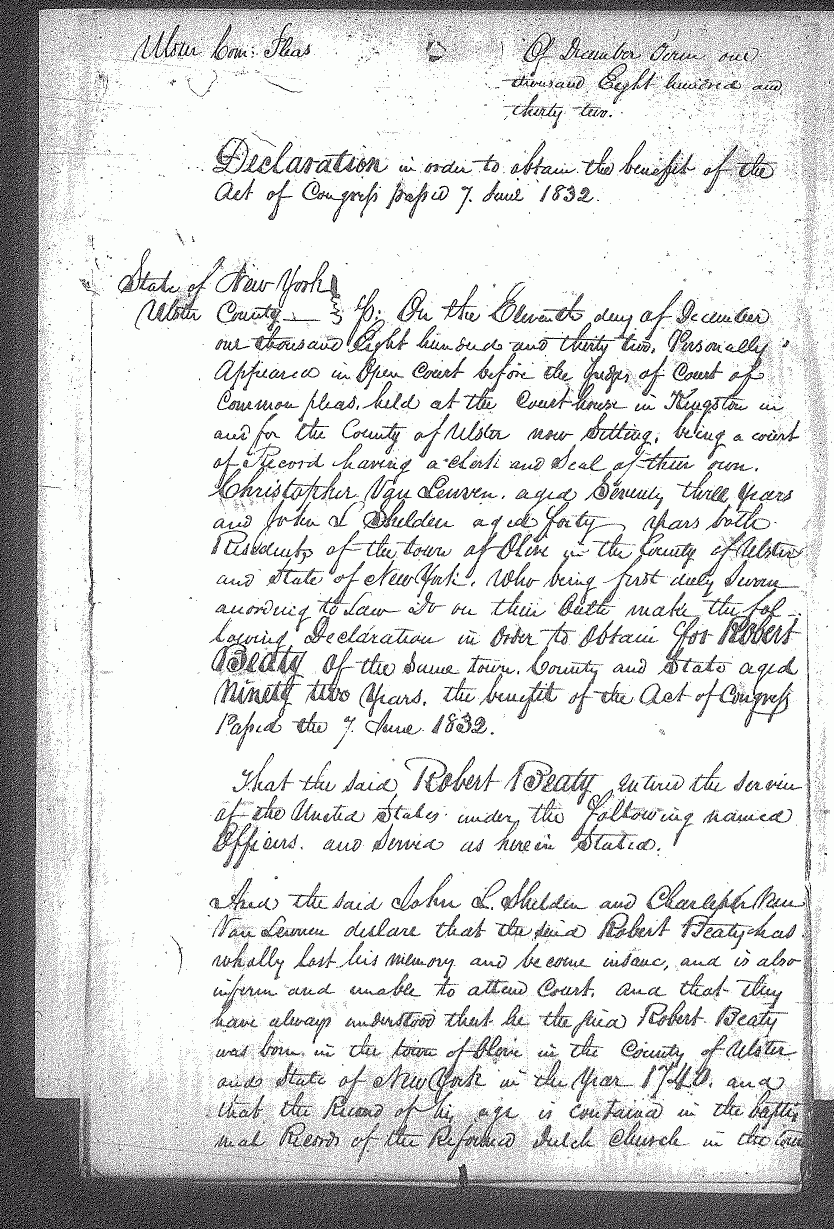 Ulster Com: Pleas
Of December Term one
thousand Eight hundred and
thirty two.
Declaration in order to obtain the benefit of the
Act of Congress passed 7. June 1832.
State of New York
Ulster County ss: On the Eleventh day of December
one thousand Eight hundred and thirty two. Personally
Appeared in Open Court before the Judges of Court of
Common pleas. held at the Court house in Kingston in
and for the County of Ulster now Sitting, being a court
of Record having a clerk and Seal of their own.
Christopher Van Leuven. aged Seventy three Years
and John L Shelden aged forty years both
Residents of the town of Olive in the County of Ulster
and State of New York. Who being first duly Sworn
according to Law Do on their Oath make the fol
lowing Declaration in Order to Obtain for Robert
Beaty of the Same town. County and State aged
Ninety two Years. the benefit of the Act of Congress
Passed the 7 June 1832.
That the said Robert Beaty entered the service
of the United States under the following named
Officers. and Served as herein Stated.
And the said John L. Shelden and Van
Van Leuven declare that the said Robert Beaty has
wholly lost his memory and become insane, and is also
infirm and unable to attend Court. and that they
have always understood that he the said Robert Beaty
was born in the town of Olive in the County of Ulster
and State of New York in the Year 1740. and
that the Record of his age is contained in the baptis
mal Records of the Reformed Dutch Church in the town